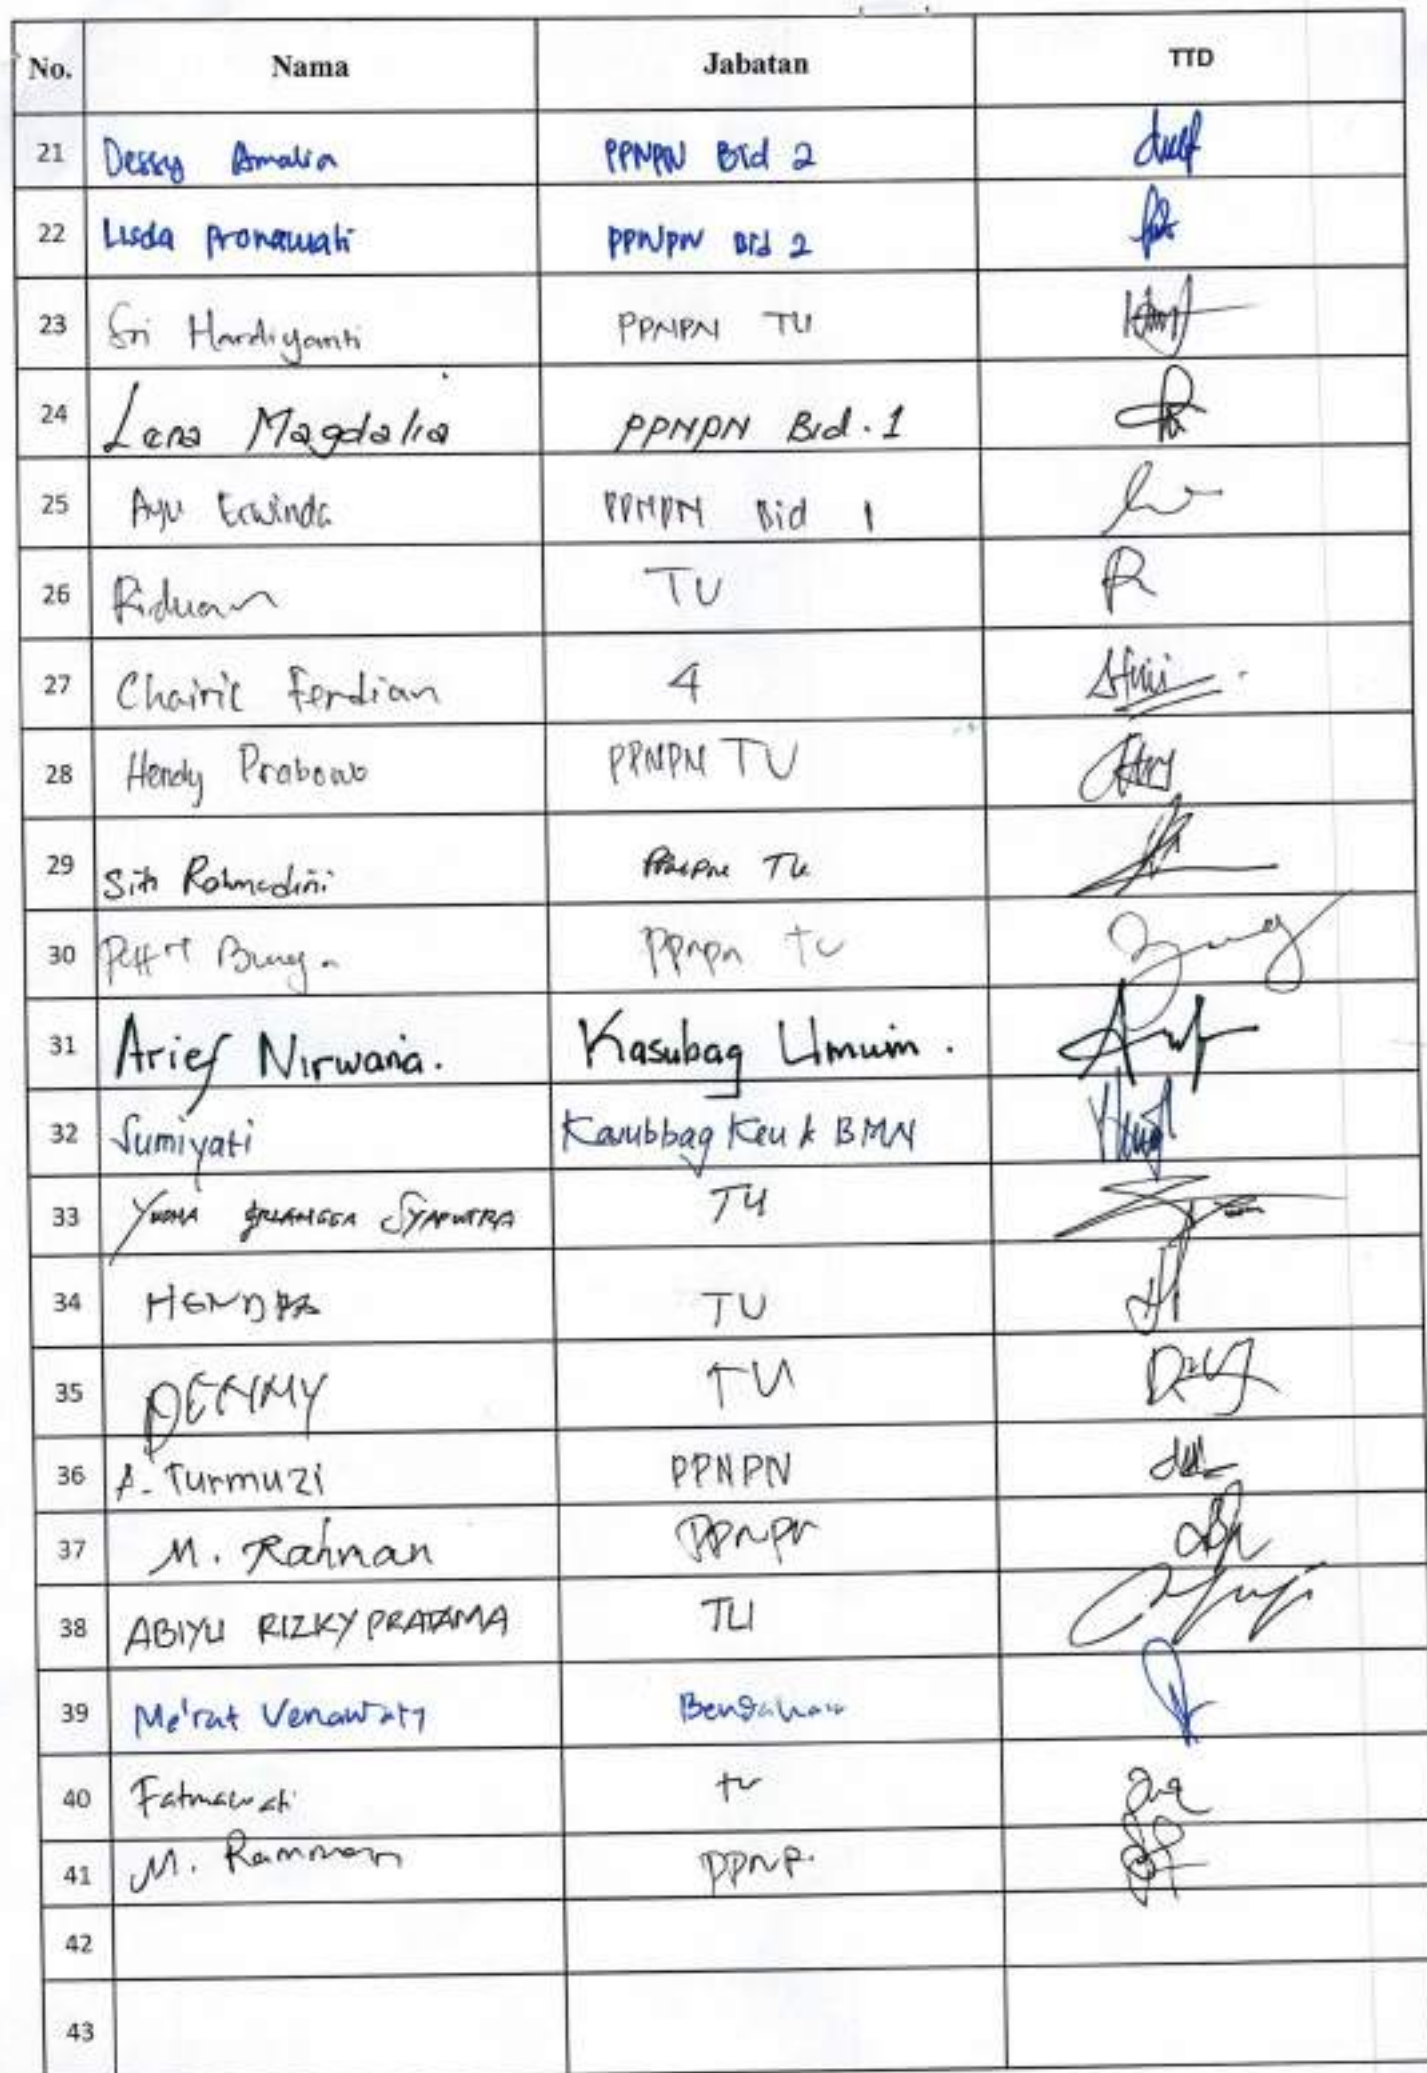 No. Nama Jabatan TTD
21 Dessy Amalia PPNPN Bid 2
22 Lisda Pronawati PPNPN Bid 2
23 Sri Hardiyanti PPNPN TU
24 Lena Magdalia PPNPN Bid. 1
25 Ayu Erwinda PPNPN Bid 1
26 Riduan TU
27 Chairil Ferdian 4
28 Hendy Prabowo PPNPN TU
29 Siti Rahmadini PPNPN TU
30 Bunga PPNPN TU
31 Arief Nirwana. Kasubag Umum.
32 Sumiyati Kasubbag Keu & BMN
33 YUDHA ERLANGGA SYAPUTRA TU
34 HENDRA TU
35 DENNY TU
36 A. Turmuzi PPNPN
37 M. Rahman PPNPN
38 ABIYU RIZKY PRATAMA TU
39 Me'rat Venawaty Bendahara
40 Fatmawati TU
41 M. PPNP.
42
43